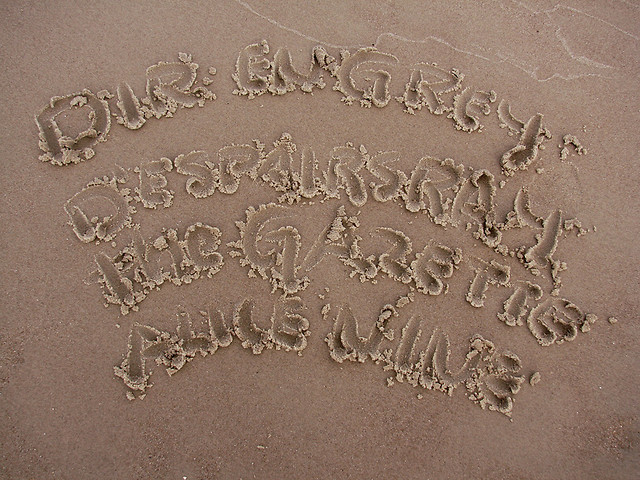 DIR EN GREY.
DESPAIRSRAY
MUC GAZETTE
ALICE NINE